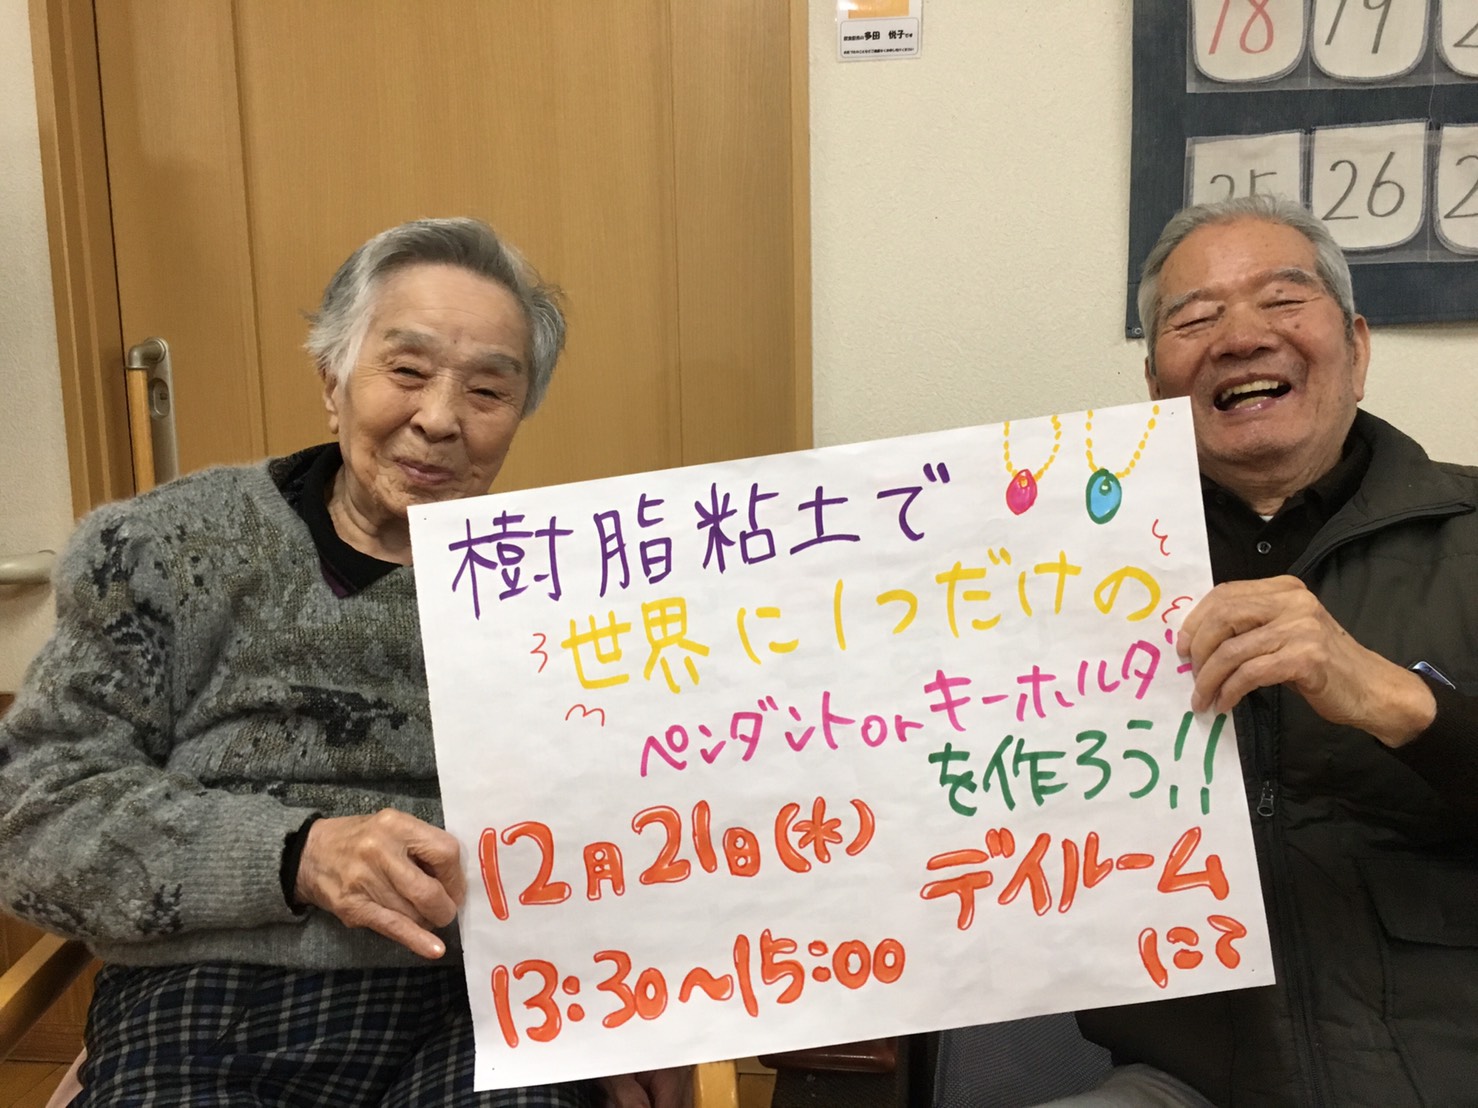 多田 悦子です
18
19
25
26
樹脂粘土で
世界に1つだけの
ペンダントorキーホルダー
を作ろう!!
12月21日(水)
デイルーム
にて
13:30~15:00